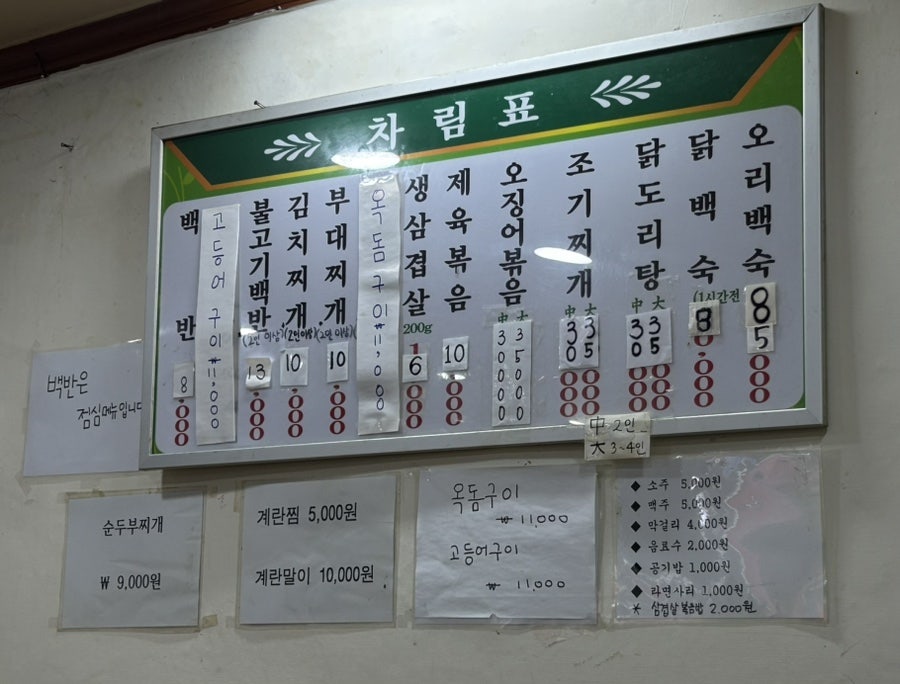 차림표
백반
8,000
고등어구이 ₩11,000
불고기백반
(2인 이상)
13,000
김치찌개
(2인이상)
10,000
부대찌개
(2인 이상)
10,000
옥돔구이 ₩11,000
생삼겹살
200g
16,000
제육볶음
10,000
오징어볶음
中 30000
大 35000
조기찌개
中 30,000
大 35,000
닭도리탕
中 30,000
大 35,000
닭백숙
(1시간전
오리백숙
85,000
中 2인
大 3~4인
백반은
점심메뉴입니다
순두부찌개
₩ 9,000원
계란찜 5,000원
계란말이 10,000원
옥돔구이
₩ 11,000
고등어구이
₩ 11,000
◆ 소주 5,000원
◆ 맥주 5,000원
◆ 막걸리 4,000원
◆ 음료수 2,000원
◆ 공기밥 1,000원
◆ 라면사리 1,000원
* 삼겹살볶음밥 2.000원